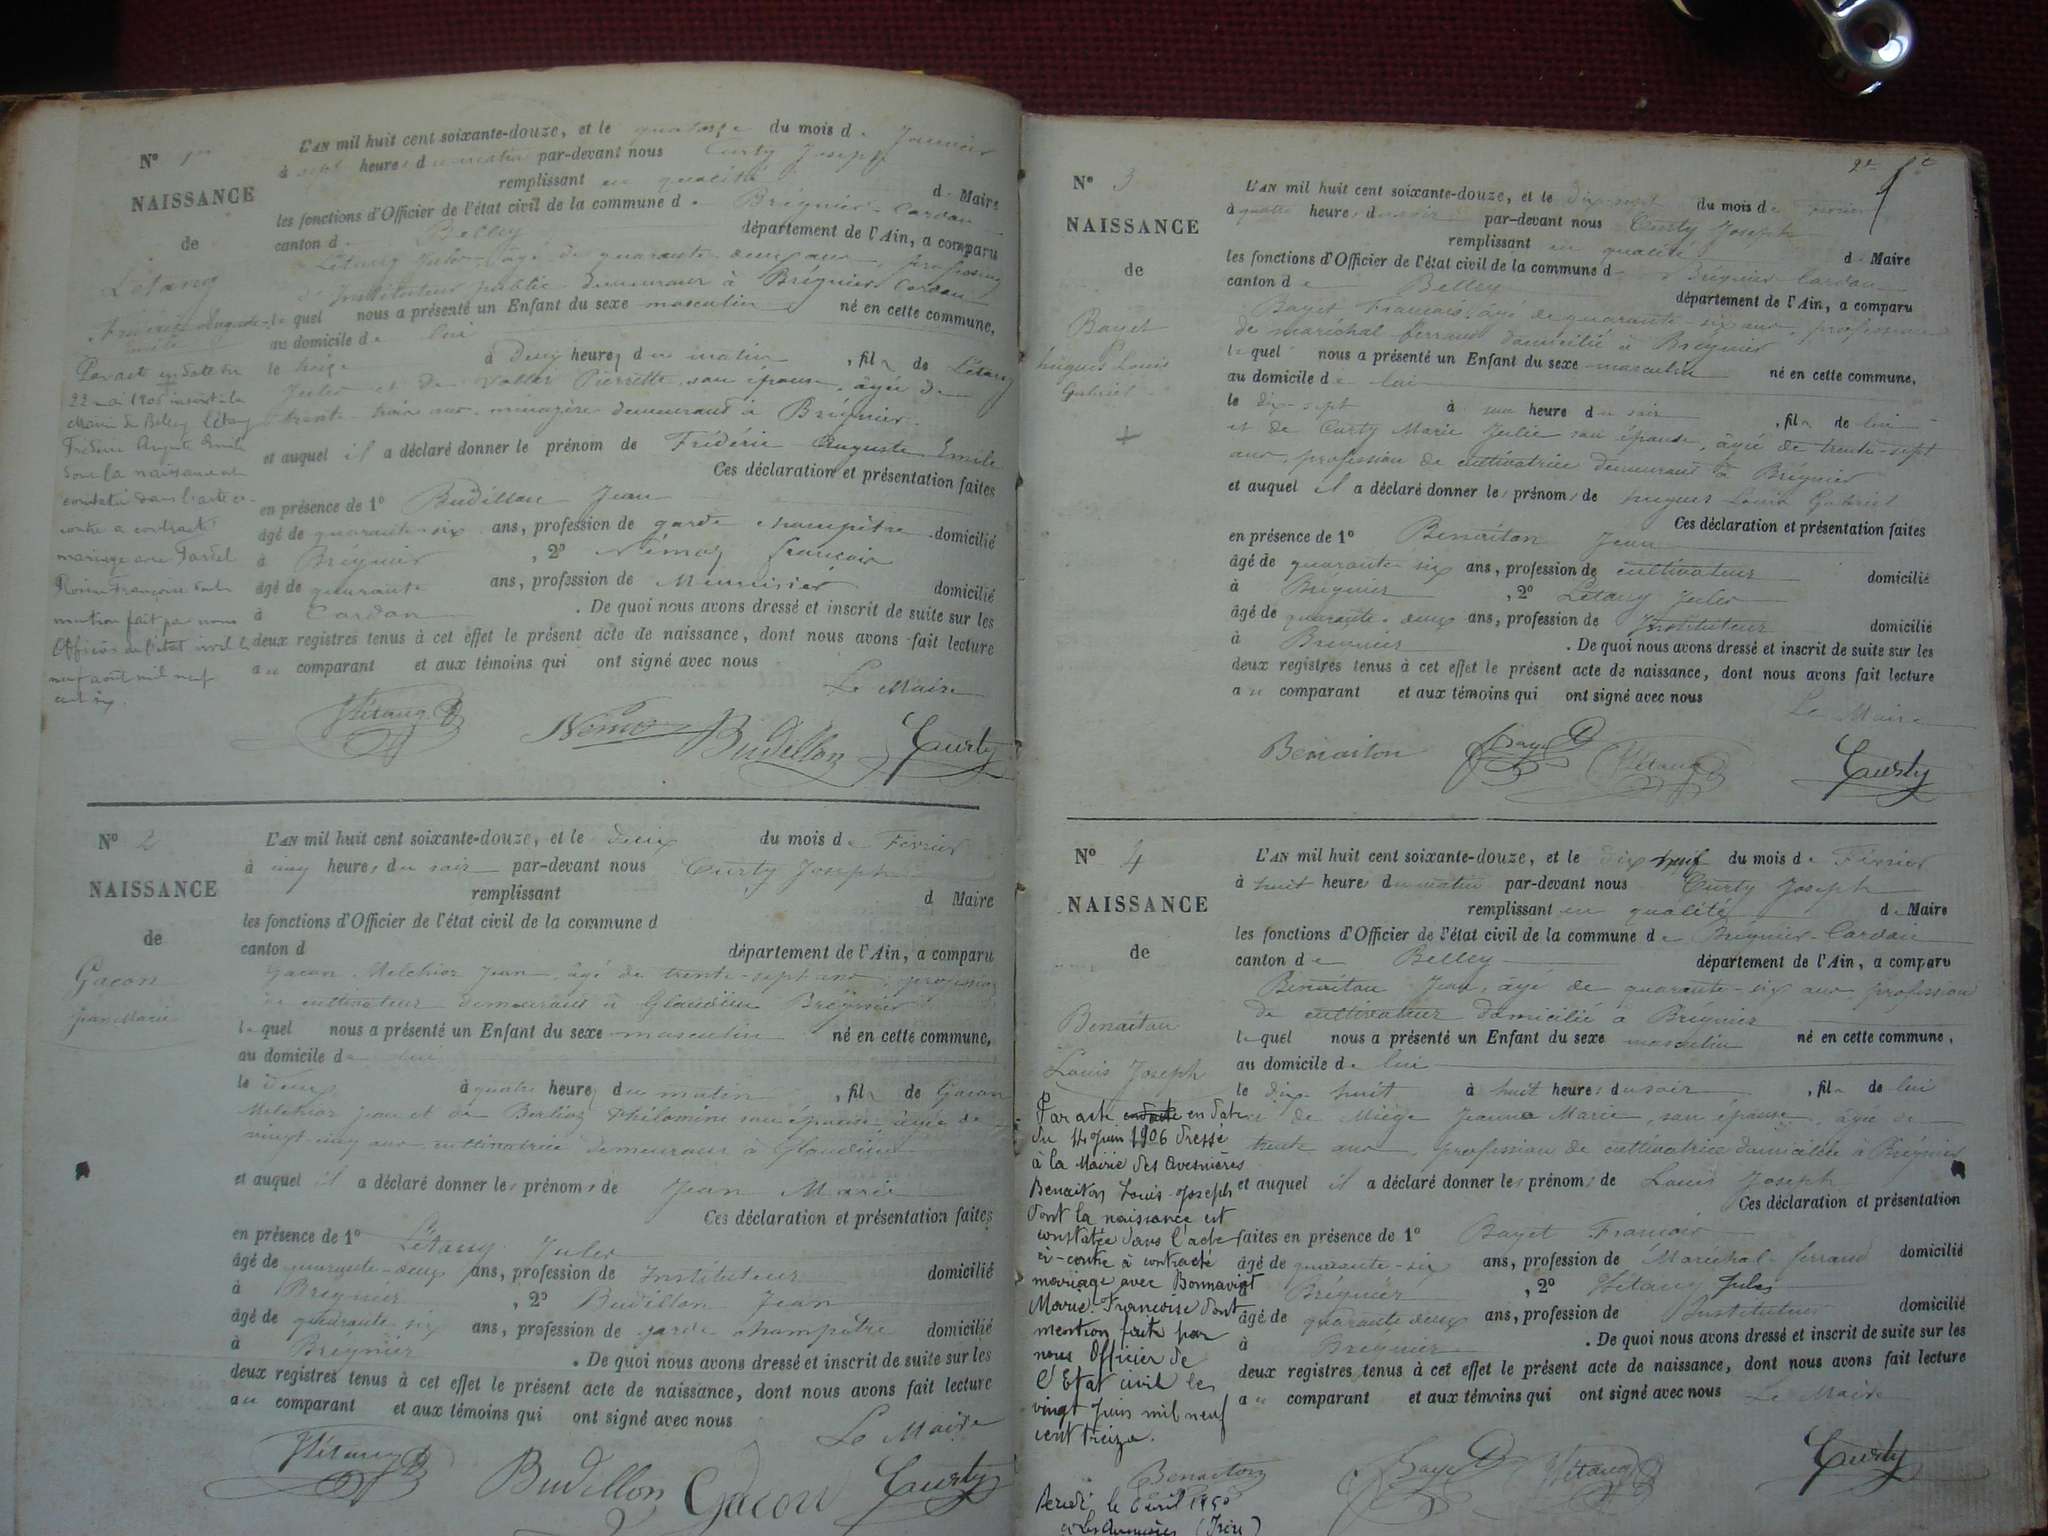 N°
NAISSANCE
de
Létang
Frédéric Auguste
L'AN mil huit cent soixante-douze, et le quatorze du mois d Janvier
à sept heures du matin par-devant nous Curty Joseph
remplissant en qualité d Maire
les fonctions d'Officier de l'état civil de la commune de Brégnier-Cordon
canton de Belley département de l'Ain, a comparu
Létang Jules âgé de quarante deux ans, profession
d'Instituteur public demeurant à Brégnier Cordon
lequel nous a présenté un Enfant du sexe masculin né en cette commune,
au domicile de lui
le à Deux heures du matin, fils de Létang
Jules et de Pierrette, son épouse, âgée de
trente-trois ans, ménagère demeurant à Brégnier
et auquel il a déclaré donner le prénom de Frédéric Auguste Emile
Ces déclaration et présentation faites
en présence de 1° Budillon Jean
âgé de quarante-six ans, profession de garde champêtre domicilié
à Brégnier, 2° Némoz françois
âgé de quarante ans, profession de Menuisier domicilié
à Cordon. De quoi nous avons dressé et inscrit de suite sur les
deux registres tenus à cet effet le présent acte de naissance, dont nous avons fait lecture
au comparant et aux témoins qui ont signé avec nous
Le Maire
Létang Némoz Budillon Curty
Par acte en date du
22 mai 1906 inscrit à la
Mairie de Belley Létang
Frédéric Auguste Emile
dont la naissance est
constatée dans l'acte ci-
contre a contracté
mariage avec
Françoise dont
mention fait par nous
Officier de l'état civil le
neuf août mil neuf
cent six.
N° 2
NAISSANCE
de
Gacon
Jean Marie
L'AN mil huit cent soixante-douze, et le deux du mois de Février
à cinq heures du soir par-devant nous Curty Joseph
remplissant d Maire
les fonctions d'Officier de l'état civil de la commune d
canton d département de l'Ain, a comparu
Gacon Melchior Jean, âgé de trente-sept ans, profession
de cultivateur demeurant à Glandieu Brégnier
lequel nous a présenté un Enfant du sexe masculin né en cette commune,
au domicile de lui
le deux à quatre heures du matin, fils de Gacon
Melchior Jean et de Berlioz Philomène son épouse, âgée de
vingt-cinq ans cultivatrice demeurant à Glandieu
et auquel il a déclaré donner les prénoms de Jean Marie
Ces déclaration et présentation faites
en présence de 1° Létang Jules
âgé de quarante-deux ans, profession de Instituteur domicilié
à Brégnier, 2° Budillon Jean
âgé de quarante six ans, profession de garde champêtre domicilié
à Brégnier. De quoi nous avons dressé et inscrit de suite sur les
deux registres tenus à cet effet le présent acte de naissance, dont nous avons fait lecture
au comparant et aux témoins qui ont signé avec nous
Le Maire
Létang Budillon Gacon Curty
N° 3
NAISSANCE
de
Bayet
hugues Louis
Gabriel
L'AN mil huit cent soixante-douze, et le dix-sept du mois de février
à quatre heures du soir par-devant nous Curty Joseph
remplissant en qualité d Maire
les fonctions d'Officier de l'état civil de la commune d Brégnier-Cordon
canton de Belley département de l'Ain, a comparu
Bayet Francois, âgé de quarante six ans, profession
de maréchal ferrant domicilié à Brégnier
lequel nous a présenté un Enfant du sexe masculin né en cette commune,
au domicile de lui
le dix-sept à une heure du soir, fils de lui
et de Curty Marie Julie son épouse, âgée de trente-sept
ans, profession de cultivatrice demeurant à Brégnier
et auquel il a déclaré donner les prénoms de hugues Louis Gabriel
Ces déclaration et présentation faites
en présence de 1° Benaiton Jean
âgé de quarante six ans, profession de cultivateur domicilié
à Brégnier, 2° Létang Jules
âgé de quarante-deux ans, profession de Instituteur domicilié
à Brégnier. De quoi nous avons dressé et inscrit de suite sur les
deux registres tenus à cet effet le présent acte de naissance, dont nous avons fait lecture
au comparant et aux témoins qui ont signé avec nous
Le Maire
Benaiton Bayet Létang Curty
N° 4
NAISSANCE
de
Benaiton
Louis Joseph
L'AN mil huit cent soixante-douze, et le dix neuf du mois de Février
à huit heures du matin par-devant nous Curty Joseph
remplissant en qualité de Maire
les fonctions d'Officier de l'état civil de la commune de Brégnier-Cordon
canton de Belley département de l'Ain, a comparu
Benaiton Jean, âgé de quarante-six ans profession
de cultivateur domicilié à Brégnier
lequel nous a présenté un Enfant du sexe masculin né en cette commune,
au domicile de lui
le dix huit à huit heures du soir, fils de lui
et de Miège Jeanne Marie, son épouse, âgée de
trente ans, profession de cultivatrice domiciliée à Brégnier
et auquel il a déclaré donner les prénoms de Louis Joseph
Ces déclaration et présentation
faites en présence de 1° Bayet Francois
âgé de quarante-six ans, profession de Maréchal-ferrant domicilié
à Brégnier, 2° Létang Jules
âgé de quarante deux ans, profession de Instituteur domicilié
à Brégnier. De quoi nous avons dressé et inscrit de suite sur les
deux registres tenus à cet effet le présent acte de naissance, dont nous avons fait lecture
au comparant et aux témoins qui ont signé avec nous Le Maire
Benaiton Bayet Létang Curty
Par acte en date
du 14 Juin 1906 dressé
à la Mairie des Avenières
Benaiton Louis-Joseph
dont la naissance est
constatée dans l'acte
ci-contre à contracté
mariage avec Bonnavigt
Marie-Francoise dont
mention faite par
nous Officier de
l'Etat civil le
vingt Juin mil neuf
cent treize.
le 6 avril 1950
(Isère)